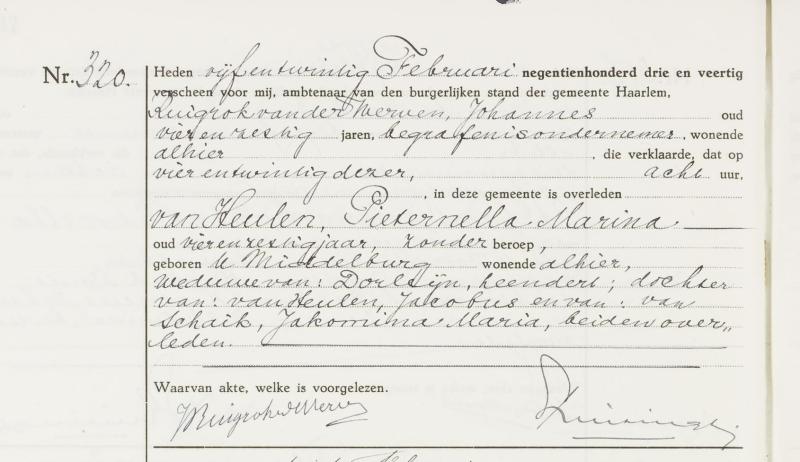 Nr. 320.
Heden vijfentwintig Februari negentienhonderd drie en veertig
verscheen voor mij, ambtenaar van den burgerlijken stand der gemeente Haarlem,
Ruigrok van der Werven, Johannes oud
vierenzestig jaren, begrafenisondernemer, wonende
alhier , die verklaarde, dat op
vierentwintig dezer, acht uur,
, in deze gemeente is overleden
van Heulen, Pieternella Marina
oud vierenzestig jaar, zonder beroep,
geboren te Middelburg wonende alhier,
weduwe van: Dorleijn, Leendert; dochter
van: van Heulen, Jacobus en van: van
Schaik, Jakomina Maria, beiden over„
leden.
Waarvan akte, welke is voorgelezen.